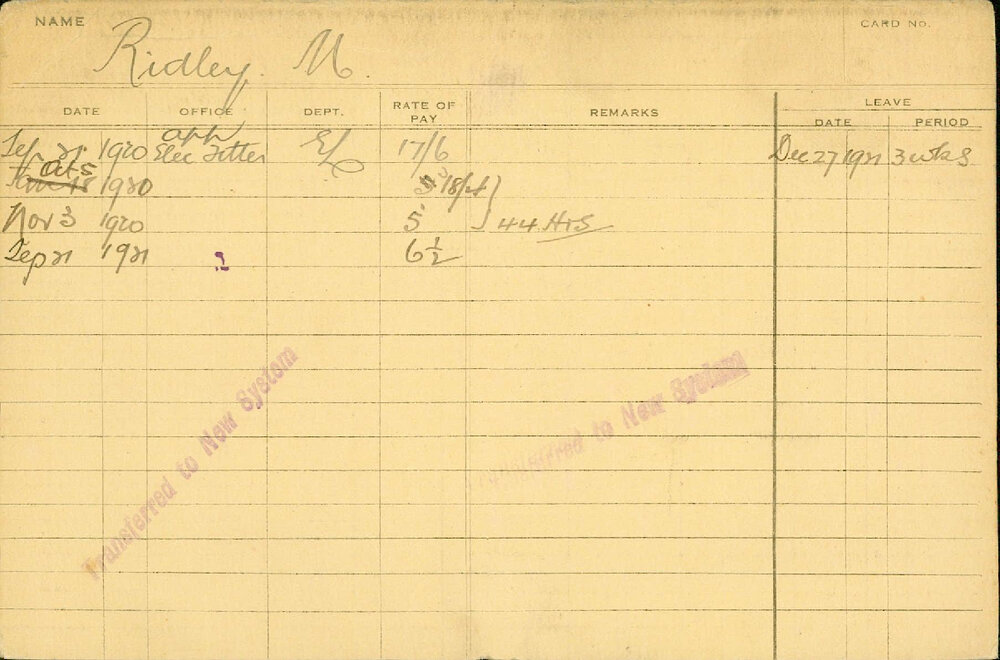 NAME
CARD NO.
Ridley. M.
DATE OFFICE DEPT. RATE OF PAY REMARKS LEAVE
DATE PERIOD
app
Sep 21 1920 Elec Fitter El 17/6 Dec 27 1921 3 wks
Oct 5
1920 18/4
Nov 3 1920 5 44 Hrs
Sep 21 1921 6½
Transferred to New System
Transferred to New System